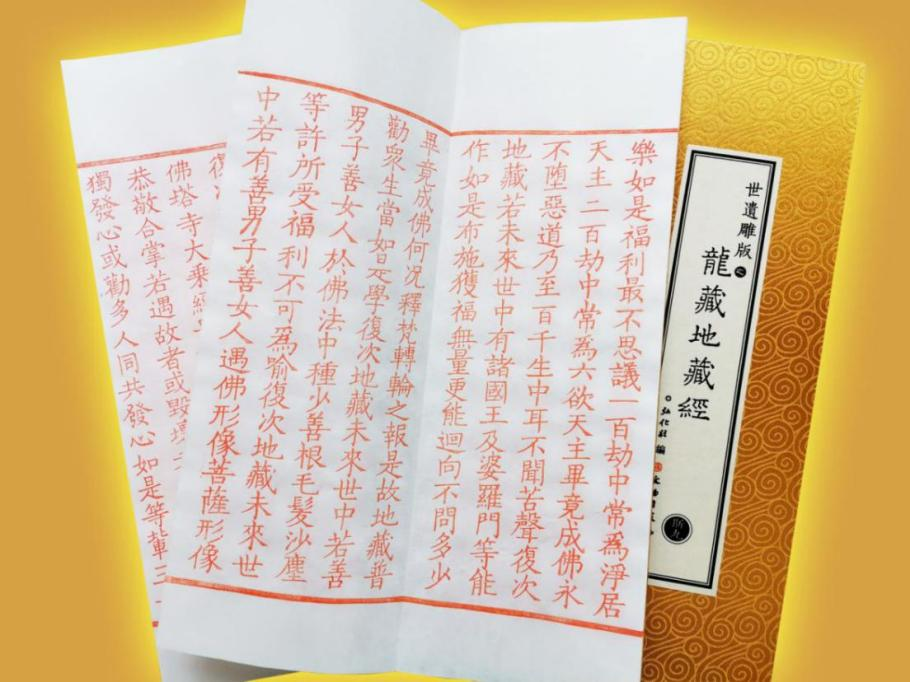 世遺雕版之
龍藏地藏經
弘化社 編
樂如是福利最不思議一百劫中常爲淨居
天主二百劫中常爲六欲天主畢竟成佛永
不墮惡道乃至百千生中耳不聞苦聲復次
地藏若未來世中有諸國王及婆羅門等能
作如是布施獲福無量更能迴向不問多少
畢竟成佛何況釋梵轉輪之報是故地藏普
勸衆生當如是學復次地藏未來世中若善
男子善女人於佛法中種少善根毛髮沙塵
等許所受福利不可爲喻復次地藏未來世
中若有善男子善女人遇佛形像菩薩形像
復
佛塔寺大乘經
恭敬合掌若遇故者或毀壞
獨發心或勸多人同共發心如是等輩三